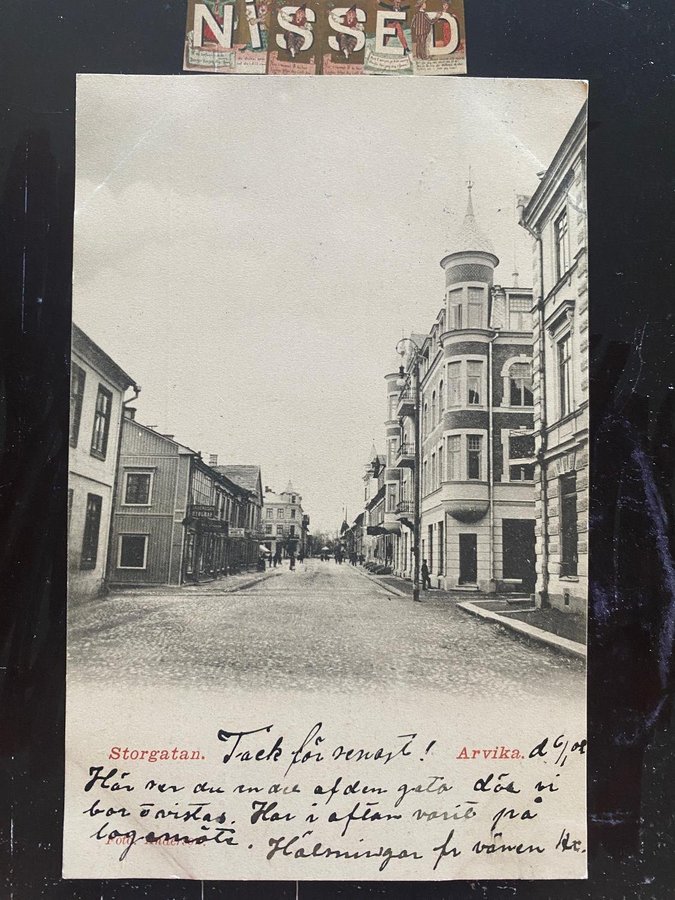 NISSED
Storgatan. Tack för senast! Arvika. d. 6/1
Här ser du en del af den gata där vi
bor Har i afton varit på
logemöte.
Hälsningar fr vännen